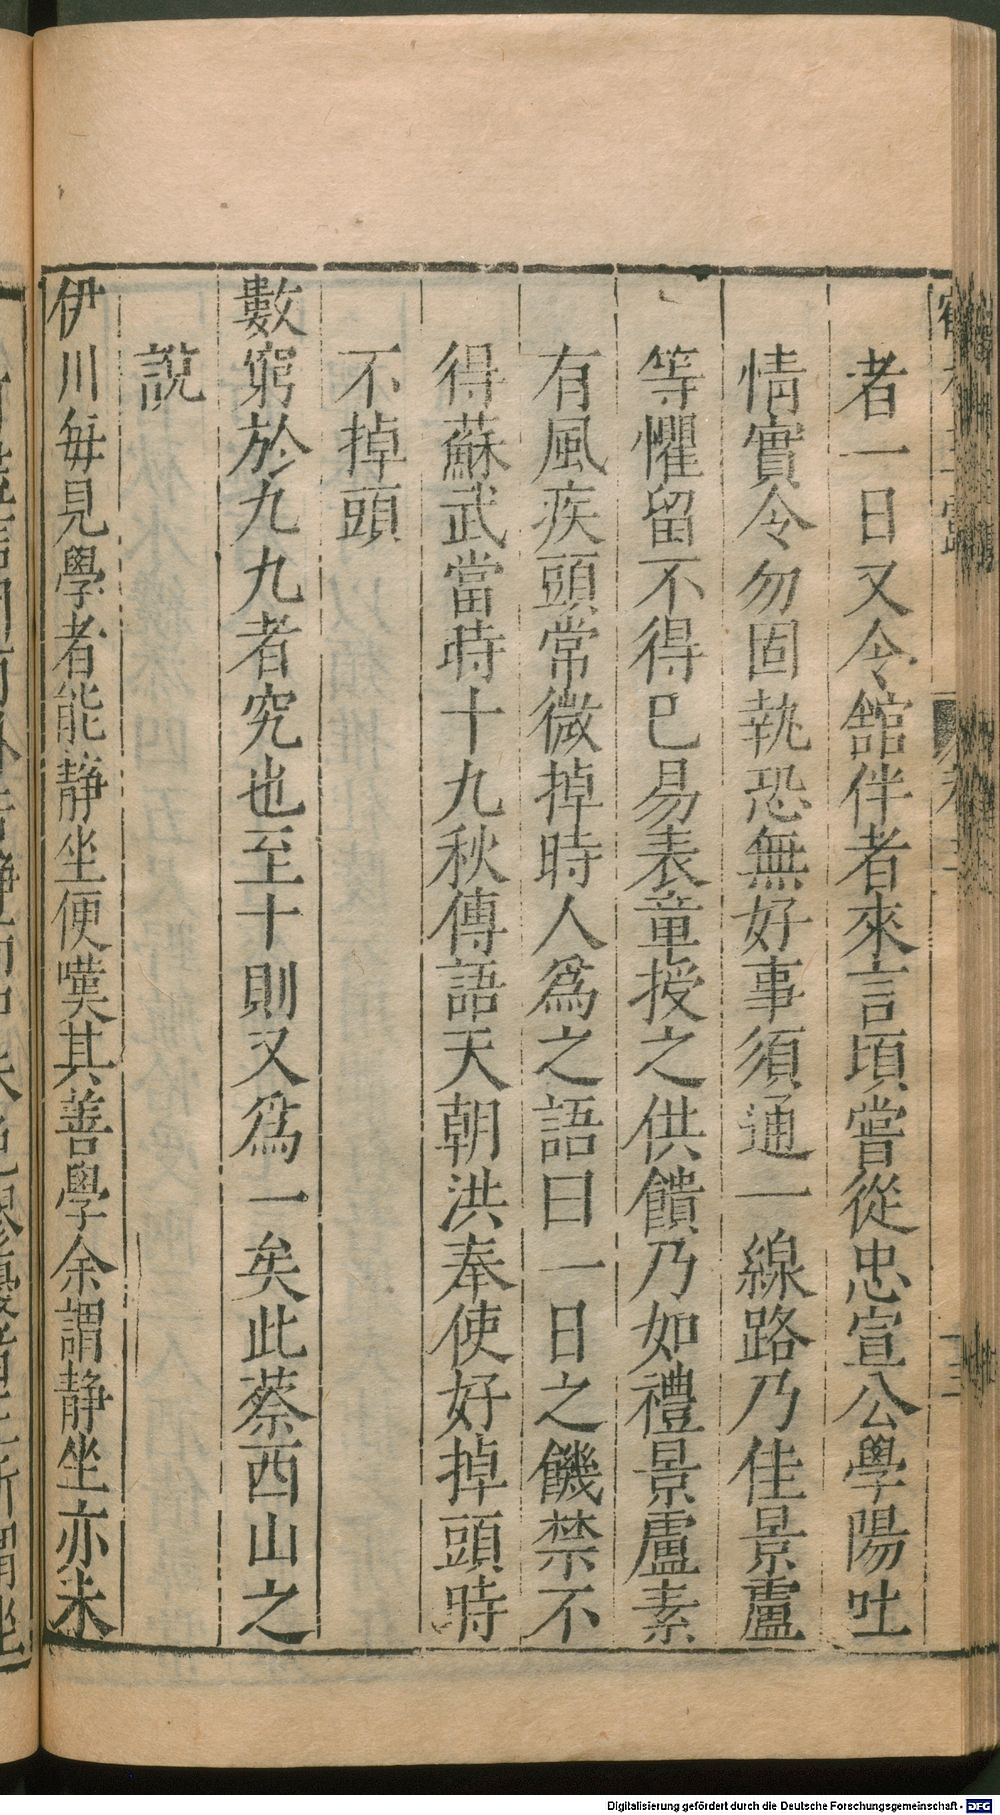 者一日又令舘伴者來言頃嘗從忠宣公學陽吐
情實令勿固執恐無好事須通一線路乃佳景盧
等懼留不得巳易表章授之供饋乃如禮景盧素
有風疾頭常微掉時人爲之語曰一日之饑禁不
得蘇武當時十九秋傳語天朝洪奉使好掉頭時
不掉頭
數窮於九九者究也至十則又爲一矣此蔡西山之
說
伊川每見學者能静坐便嘆其善學余謂静坐亦未
Digitalisierung gefördert durch die Deutsche Forschungsgemeinschaft - DFG